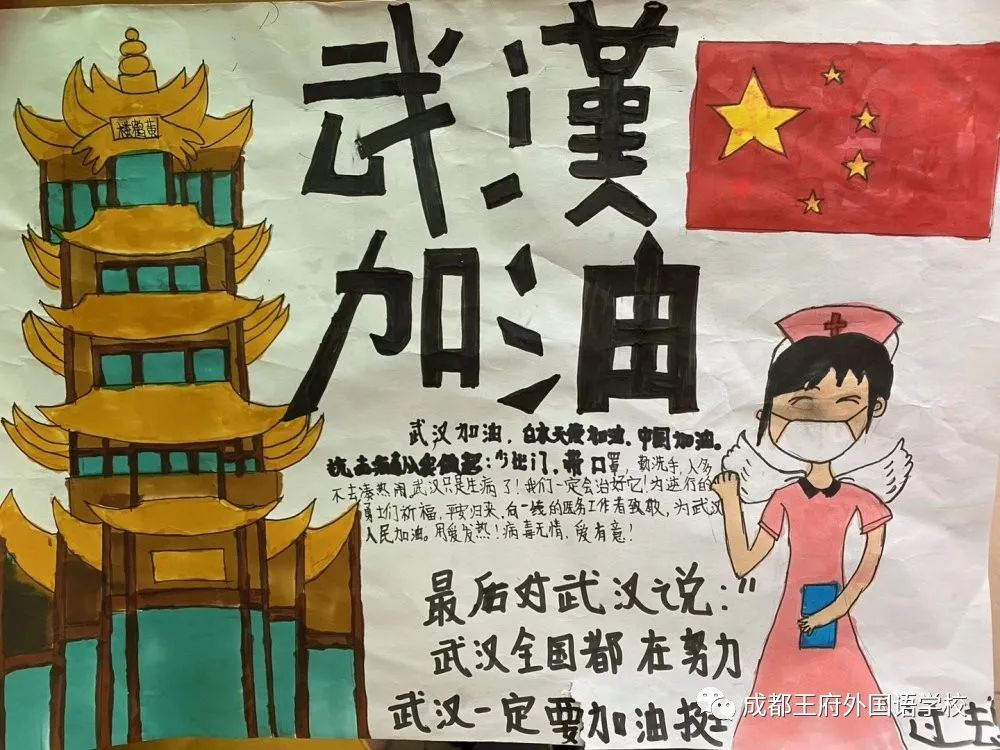 黃鶴樓
武漢
加油
武汉加油,白衣天使加油,中国加油。
抗击病毒从我做起:少出门,带口罩,勤洗手,人多
不去凑热闹,武汉只是生病了!我们一定会治好它!为逆行的
勇士们祈福,平安归来,向一线的医务工作者致敬,为武汉
人民加油。用爱发热!病毒无情,爱有意!
最后对武汉说:"
武汉全国都在努力
武汉一定要加油挺过去
成都王府外国语学校